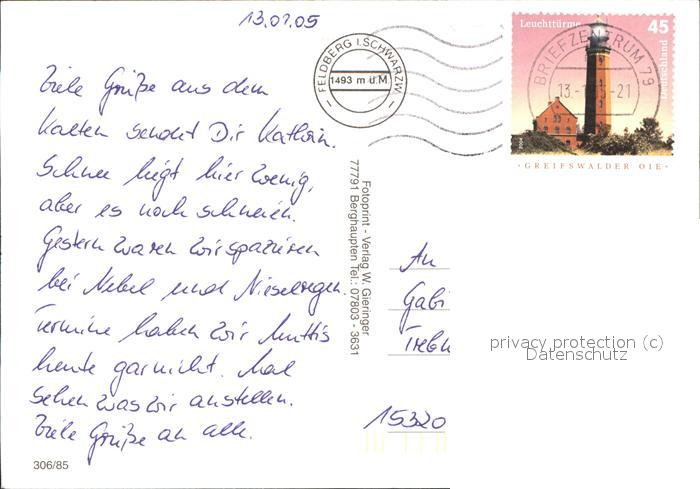 13.01.05
Viele Grüße aus dem
kalten sendet Dir Kathrin.
Schnee liegt hier wenig,
aber es noch schneien.
Gestern waren wir spazieren
bei Nebel und Nieselregen.
Termine haben wir Muttis
heute gar nicht. Mal
sehen was wir anstellen.
Viele Grüße an alle.
306/85
FELDBERG I. SCHWARZW.
1493 m ü.M.
Fotoprint - Verlag W. Gieringer
77791 Berghaupten Tel.: 07803 - 3631
Leuchttürme
45
Deutschland
2004
BRIEFZENTRUM 79
-21
·GREIFSWALDER OIE·
An
Gabi
15320
privacy protection (c)
Datenschutz